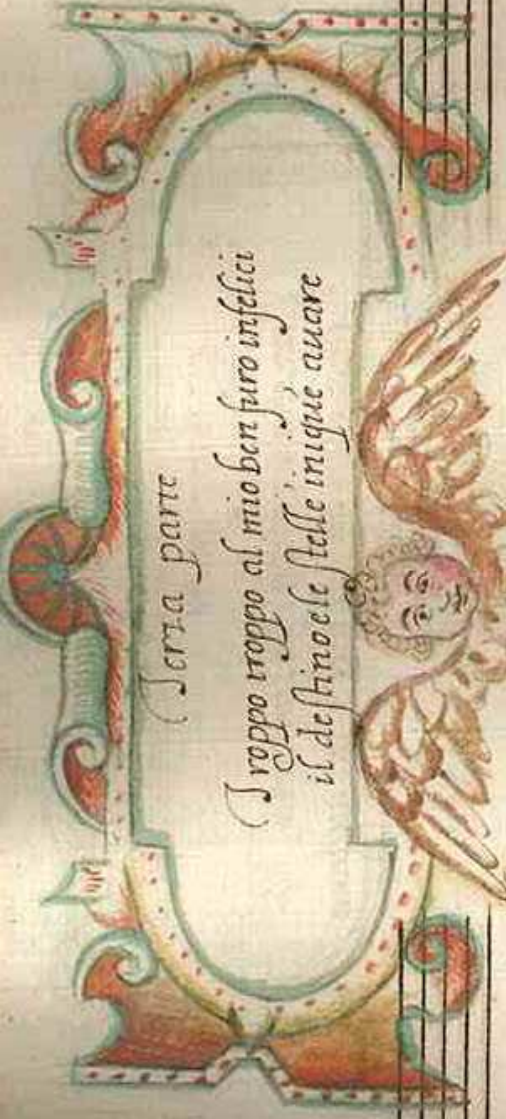 Terza parte
Troppo troppo al mio ben furo infelici
il destino e le stelle inique auare